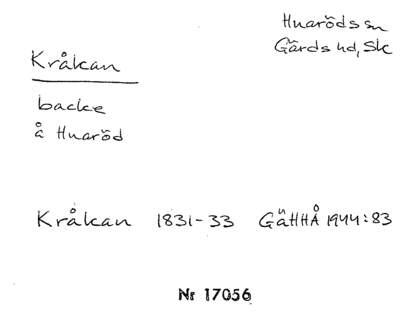 Huarödssn
Gärds hd, Sk
Kråkan
backe
å Huaröd
Kråkan 1831-33 GäHHÅ 1944:83
Nr 17056